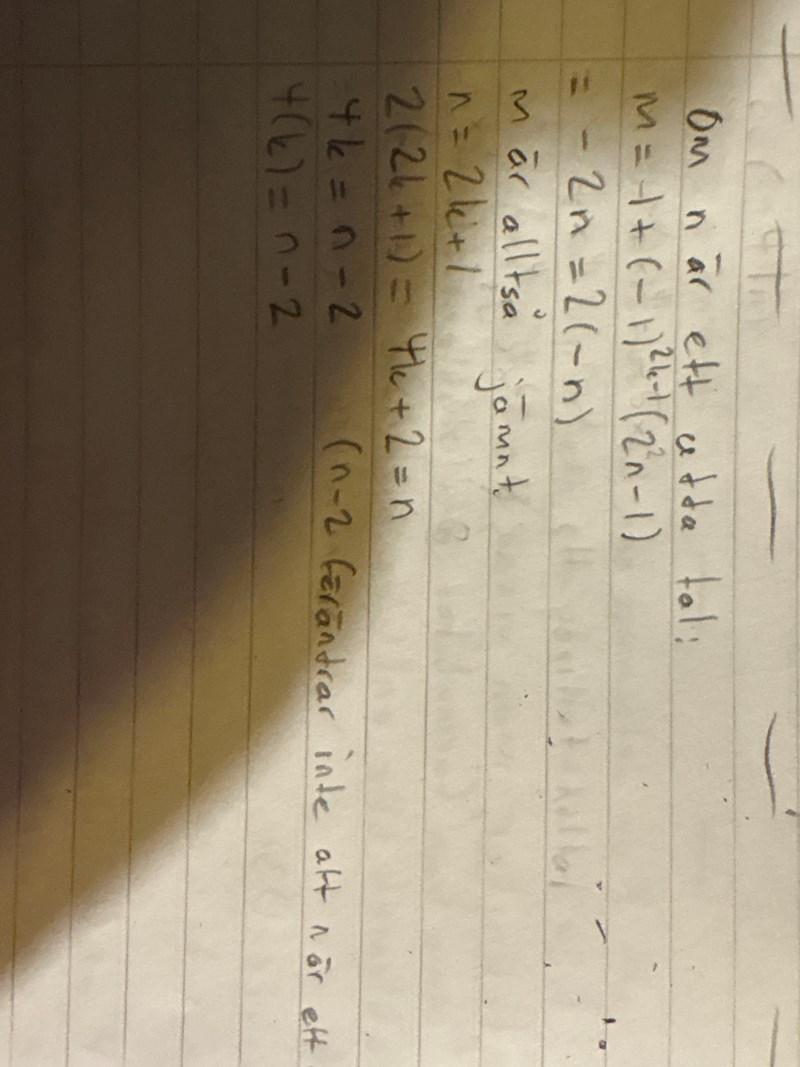 Om n är ett udda tal:
m = -1 + (-1)^{2k-1}(2^2n-1)
= -2n = 2(-n)
m är alltså jämnt.
n = 2k+1
2(2k+1) = 4k+2 = n
4k = n-2 (n-2 förändrar inte att n är ett
4(k) = n-2